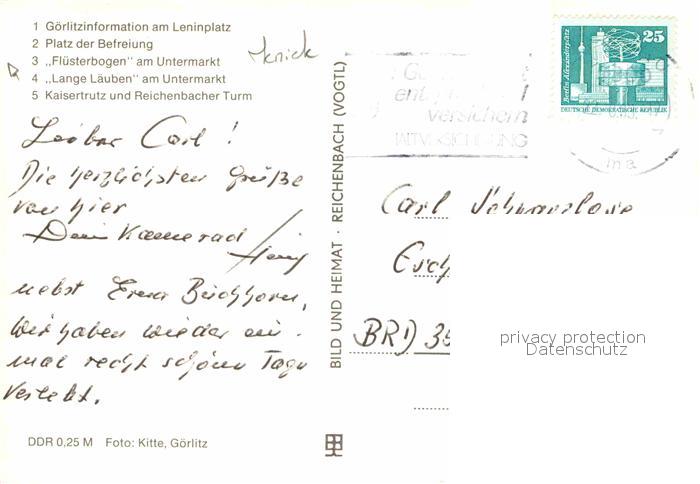 1 Görlitzinformation am Leninplatz
2 Platz der Befreiung
3 „Flüsterbogen“ am Untermarkt
4 „Lange Läuben“ am Untermarkt
5 Kaisertrutz und Reichenbacher Turm
knick
Lieber Carl!
Die herzlichsten Grüße
von hier
Dein Kamerad
nebst Erna Buchhorn,
Wir haben wieder ein-
mal recht schöne Tage
verlebt.
DDR 0,25 M Foto: Kitte, Görlitz
BILD UND HEIMAT · REICHENBACH (VOGTL)
versichern
25
Berlin, Alexanderplatz
DEUTSCHE DEMOKRATISCHE REPUBLIK
Carl Schwarzlose
Esch
BRD 35
privacy protection
Datenschutz